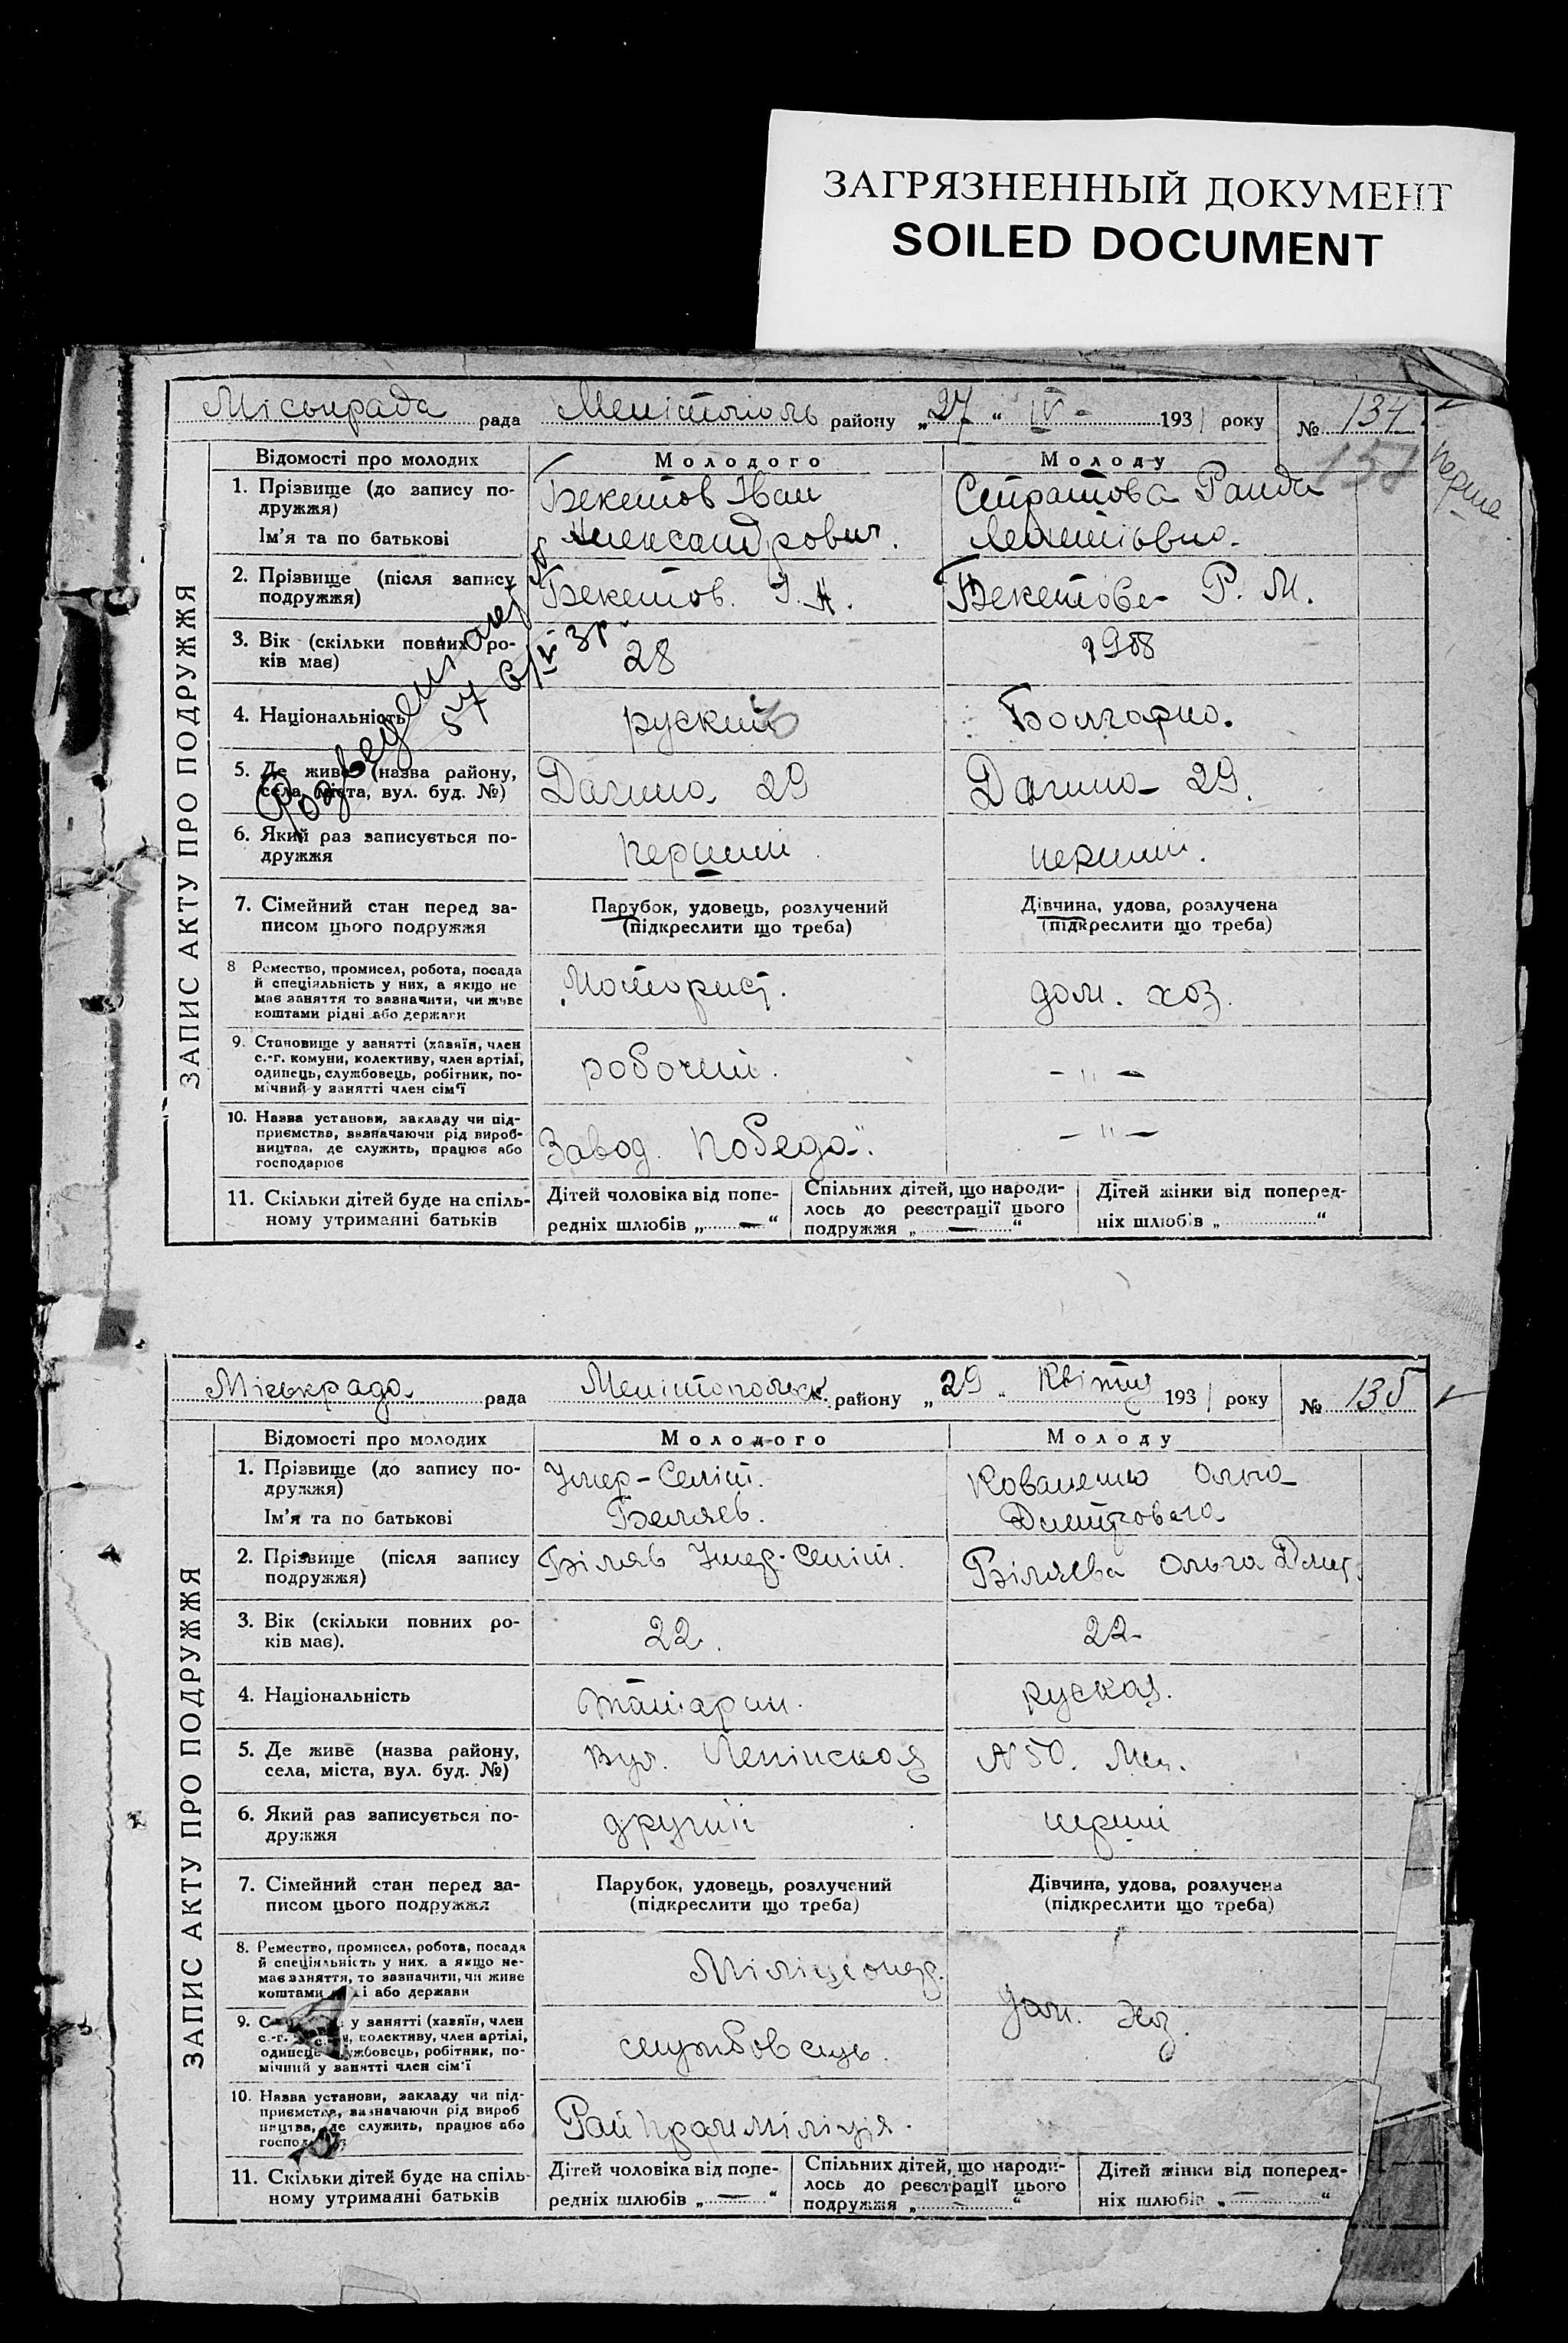 ЗАГРЯЗНЕННЫЙ ДОКУМЕНТ
SOILED DOCUMENT
Міськрада рада Мелітополь району „27“ IV - 1931 року № 134
Відомості про молодих Молодого Молоду
ЗАПИС АКТУ ПРО ПОДРУЖЖЯ
1. Прізвище (до запису по-
дружжя)
Ім'я та по батькові
Бекетов Іван
Александрович.
2. Прізвище (після запису
подружжя)
Бекетов. І. А.
Бекетова Р. М.
3. Вік (скільки повних ро-
ків має)
28
1908
4. Національність
руский
Болгарка.
5. Де живе (назва району,
села, міста, вул. буд. №)
29
29.
6. Який раз записується по-
дружжя
перший
перший.
7. Сімейний стан перед за-
писом цього подружжя
Парубок, удовець, розлучений
(підкреслити що треба)
Дівчина, удова, розлучена
(підкреслити що треба)
8 Ремество, промисел, робота, посада
й спеціяльність у них, а якщо не
має заняття то зазначити, чи живе
коштами рідні або держави
Моторист.
дом. хоз.
9. Становище у занятті (хазяїн, член
с.-г. комуни, колективу, член артілі,
одинець, службовець, робітник, по-
мічний у занятті член сім'ї
робочий.
- " -
10. Назва установи, закладу чи під-
приємства, зазначаючи рід вироб-
ництва, де служить, працює або
господарює
Завод. Победа".
- " -
11. Скільки дітей буде на спіль-
ному утриманні батьків
Дітей чоловіка від попе-
редніх шлюбів „ — “
Спільних дітей, що народи-
лось до реєстрації цього
подружжя „ — “
Дітей жінки від поперед-
ніх шлюбів „ “
Міськрада рада Мелітопольськ. району „29“ Квітня 1931 року № 135
Відомості про молодих Молодого Молоду
ЗАПИС АКТУ ПРО ПОДРУЖЖЯ
1. Прізвище (до запису по-
дружжя)
Ім'я та по батькові
Умер-Селіт.
Беляев.
Коваленко Ольга
Дмитровна
2. Прізвище (після запису
подружжя)
Біляв Умер-Селіт.
Біляева Ольга Дмит.
3. Вік (скільки повних ро-
ків має).
22.
22-
4. Національність
татарин.
руская.
5. Де живе (назва району,
села, міста, вул. буд. №)
вул. Ленінская
№ 50. Мел.
6. Який раз записується по-
дружжя
другий
перший
7. Сімейний стан перед за-
писом цього подружжя
Парубок, удовець, розлучений
(підкреслити що треба)
Дівчина, удова, розлучена
(підкреслити що треба)
8. Ремество, промисел, робота, посада
й спеціяльність у них, а якщо не-
має заняття, то зазначити, чи живе
коштами і або держави
Міліціонер.
дом. хоз.
9. у занятті (хазяїн, член
с.-г. колективу, член артілі,
одинець службовець, робітник, по-
мічний у занятті член сім'ї
службовець.
10. Назва установи, закладу чи під-
приємства, зазначаючи рід вироб
ництва, де служить, працює або
11. Скільки дітей буде на спіль-
ному утриманні батьків
Дітей чоловіка від попе-
редніх шлюбів „ — “
Спільних дітей, що народи-
лось до реєстрації цього
подружжя „ — “
Дітей жінки від поперед-
ніх шлюбів „ — “